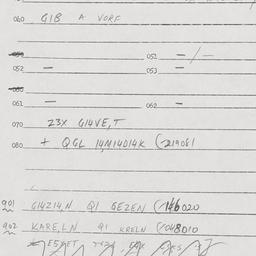 060 GIB A VORF
051 - / -
052 - 053 -
061 - 062 -
070 23X G14VE,T
080 + QGL 14,M14D14K (219081
901 G14Z14,N Q1 GEZEN (146020
902 KARE,LN Q1 KRELN (048010